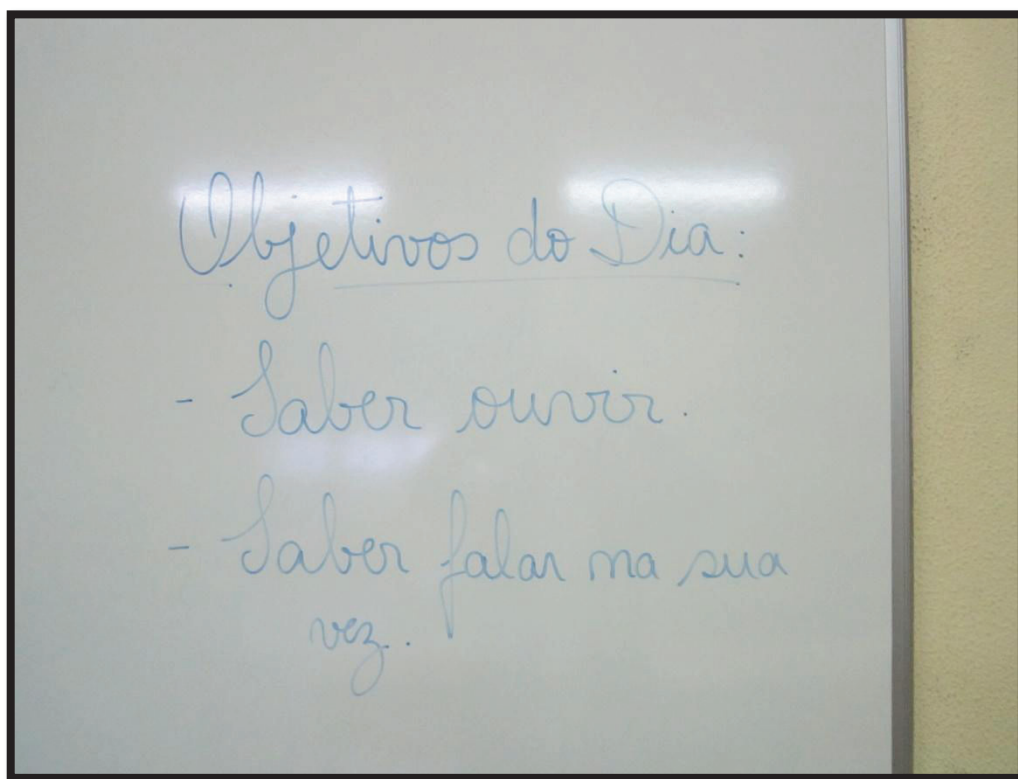 Objetivos do Dia:
- Saber ouvir.
- Saber falar na sua
vez.